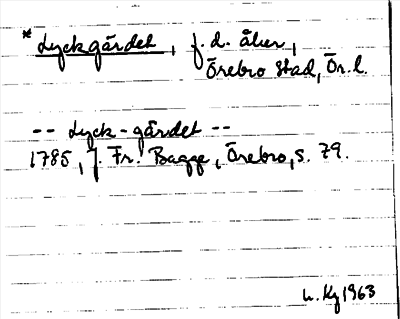 * Lyckgärdet, f.d. åker,
Örebro stad, Ör.l.
-- Lyck-gärdet --
1785, J. Fr. Bagge, Örebro, s. 79.
L. Kg 1963